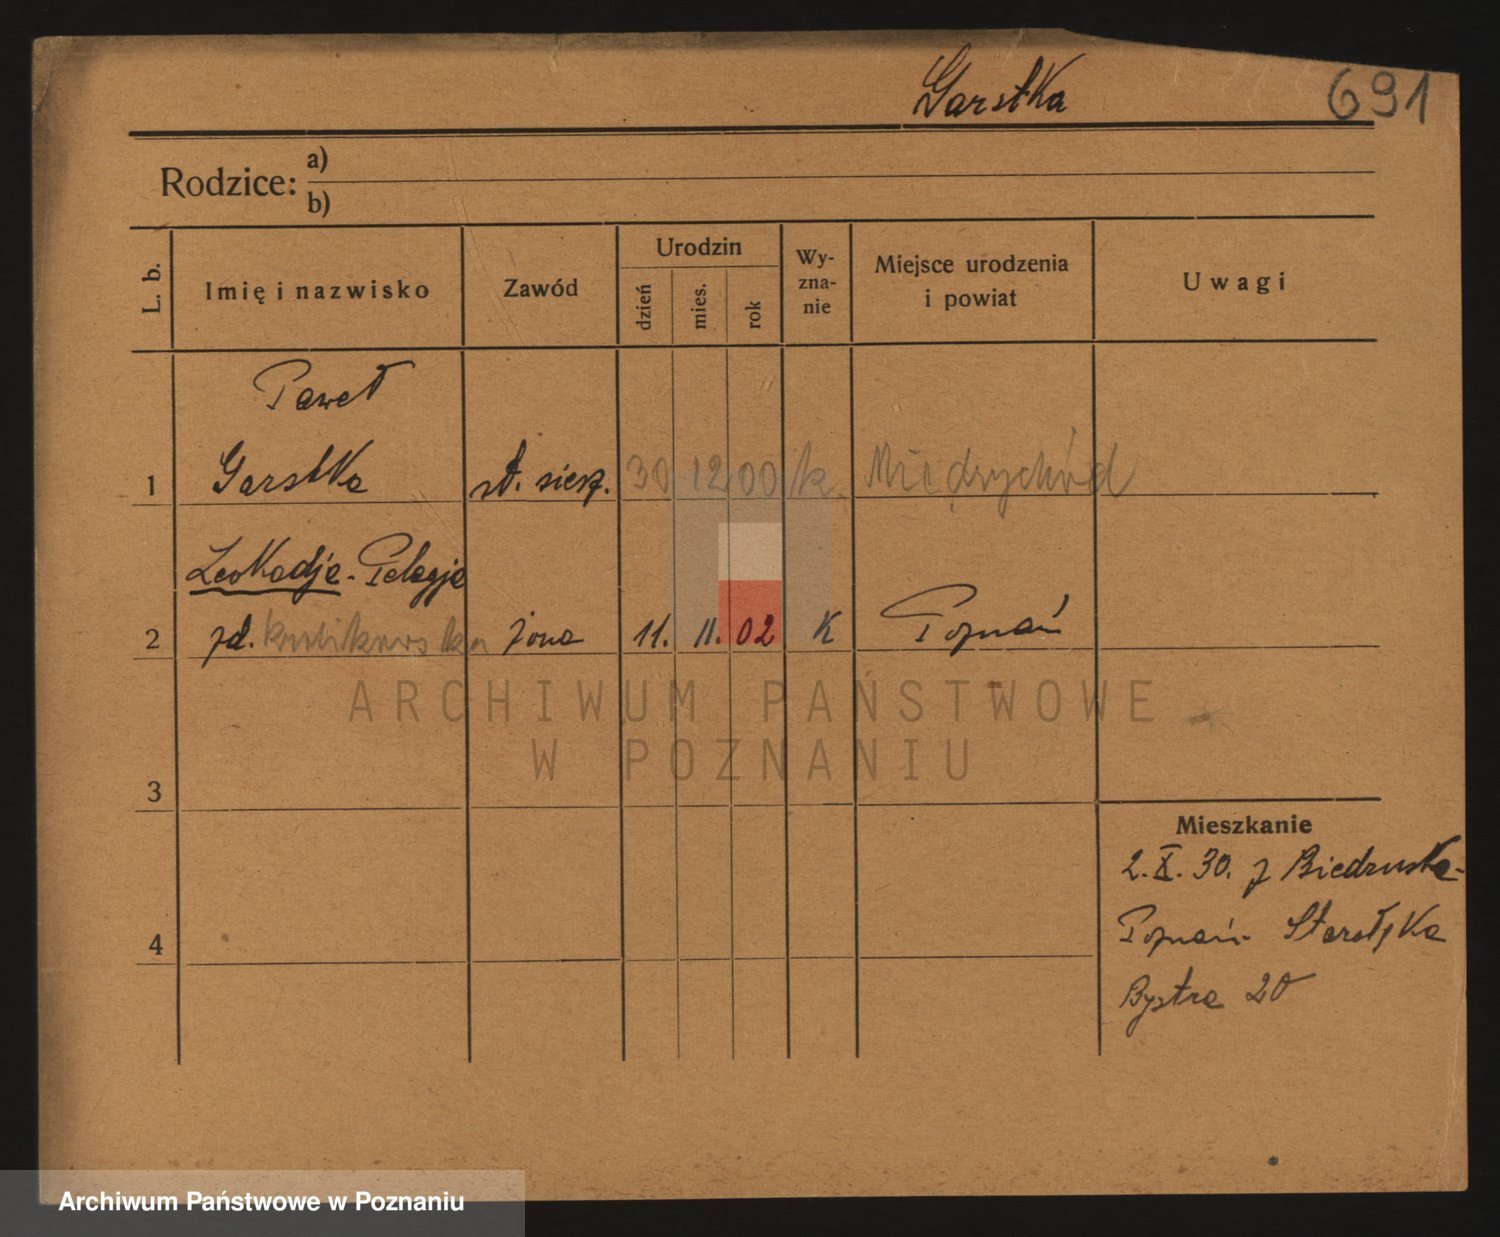 Garstka 691
Rodzice: a)
b)
L. b. Imię i nazwisko Zawód Urodzin dzień mies. rok Wy-zna-nie Miejsce urodzenia i powiat Uwagi
Paweł
1 Garstka st. sierż. 30 12 00 k. Międzychód
Leokadja-Pelagja
2 zd. żona 11. 11. 02 K Poznań
ARCHIWUM PAŃSTWOWE
W POZNANIU
3
Mieszkanie
2.X.30. z Biedruska-
4 Poznań- Starołęka
Bystra 20
Archiwum Państwowe w Poznaniu